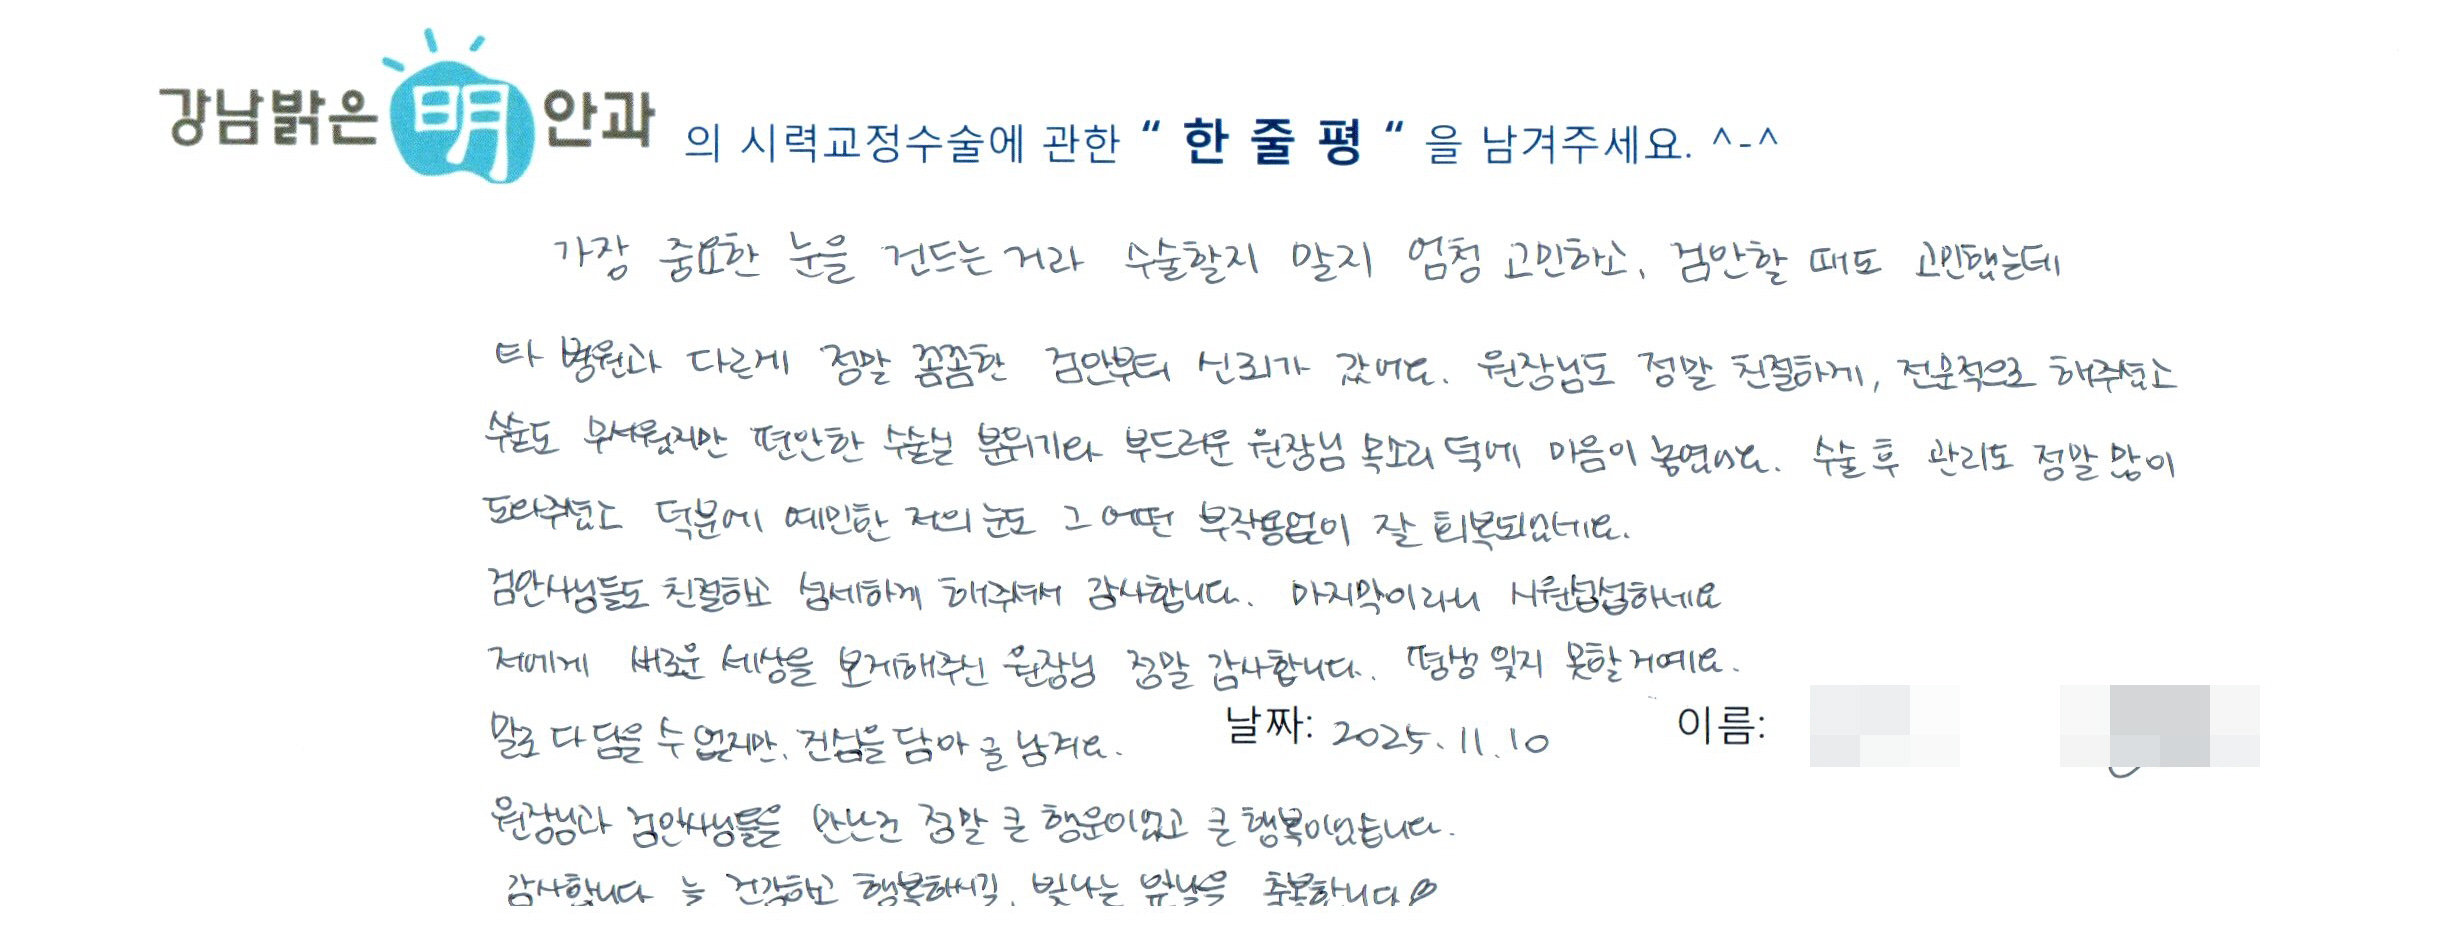 강남밝은 明 안과 의 시력교정수술에 관한 “ 한 줄 평 “ 을 남겨주세요. ^-^
가장 중요한 눈을 건드는 거라 수술할지 말지 엄청 고민하고, 검안할 때도 고민했는데
타 병원과 다르게 정말 꼼꼼한 검안부터 신뢰가 갔어요. 원장님도 정말 친절하게, 전문적으로 해주셨고
수술도 무서웠지만 편안한 수술실 분위기와 부드러운 원장님 목소리 덕에 마음이 놓였어요. 수술 후 관리도 정말 많이
도와주셨고 덕분에 예민한 저의 눈도 그 어떤 부작용없이 잘 회복되었네요.
검안사님들도 친절하고 섬세하게 해주셔서 감사합니다. 마지막이라니 시원섭섭하네요
저에게 새로운 세상을 보게해주신 원장님 정말 감사합니다. 평생 잊지 못할거예요.
말로 다 담을 수 없지만, 진심을 담아 글 남겨요.
날짜: 2025.11.10 이름:
원장님과 검안사님들을 만난건 정말 큰 행운이었고 큰 행복이었습니다.
감사합니다 늘 건강하고 행복하시길, 빛나는 앞날을 축복합니다♡